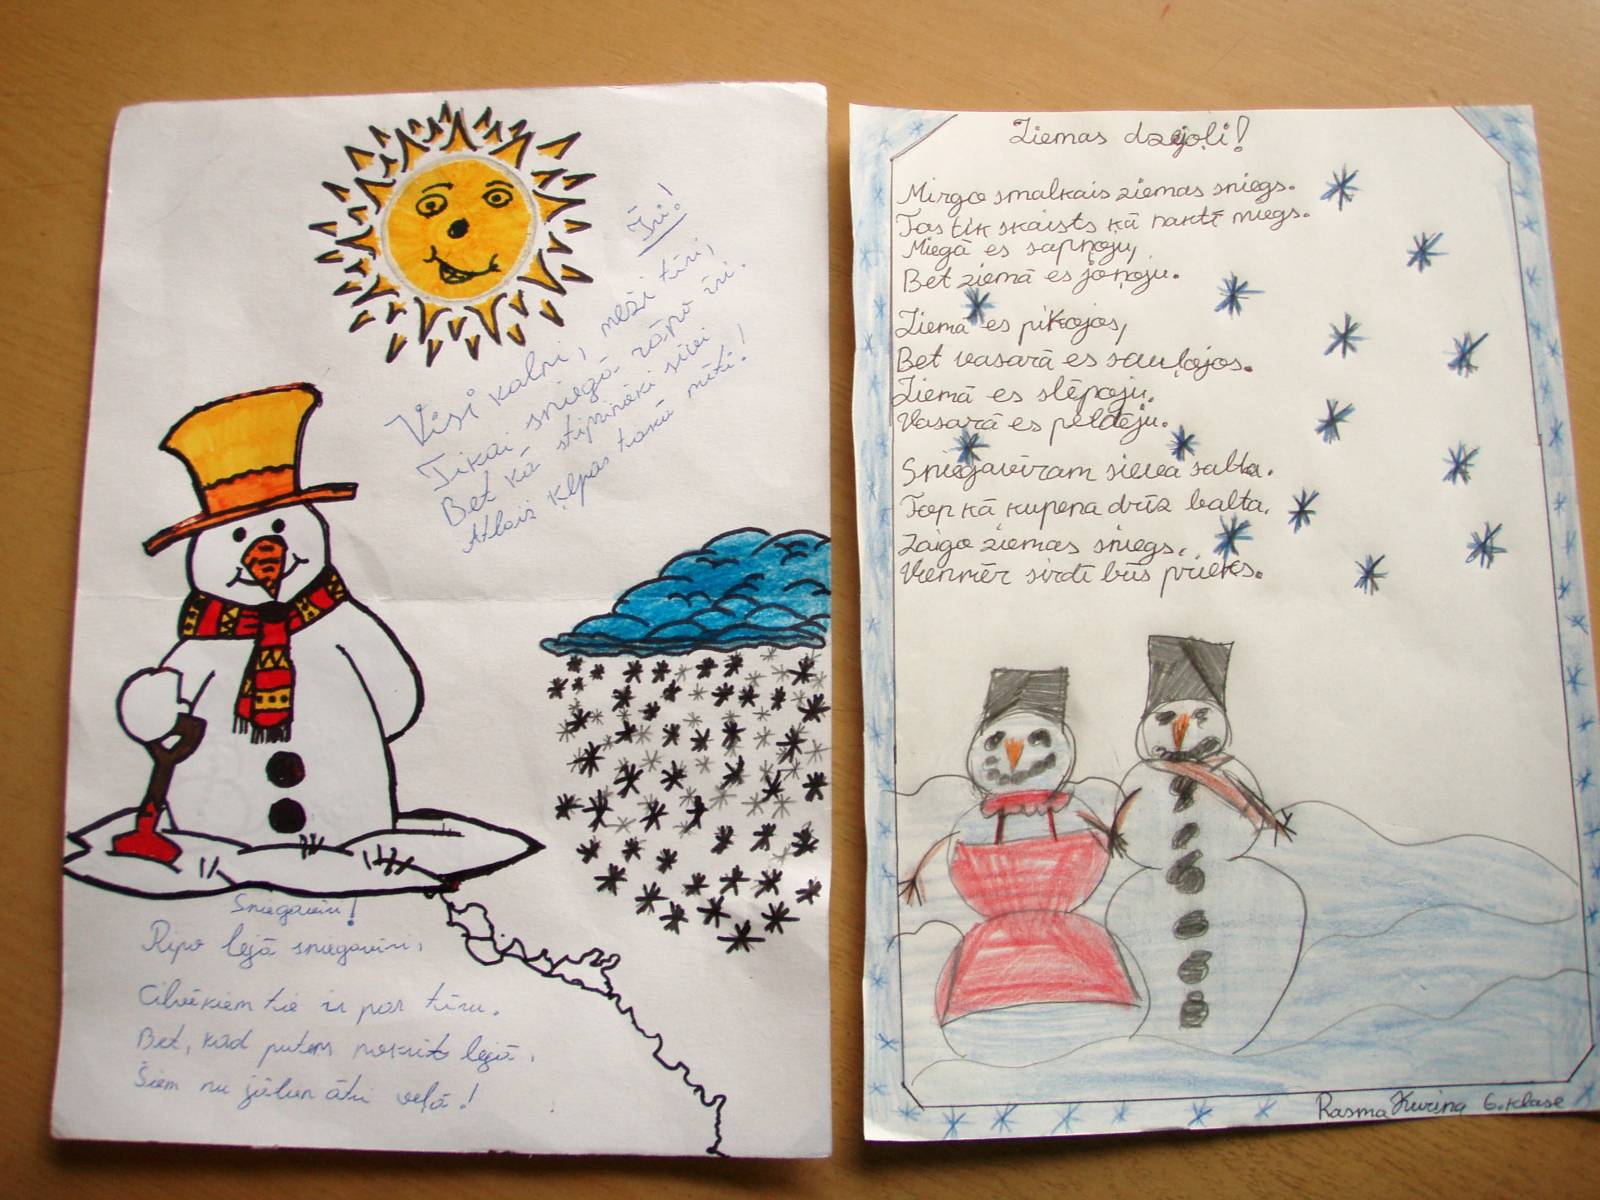 Īri!
Visi kalni, meži tīri,
Tikai sniegā rāpo īri.
Bet kā stiprināki sīvi
Atlaiž ķepas taku mīti!
Sniegavīri!
Ripo lejā sniegavīri,
Cilvēkiem tie ir par tīru.
Bet, kad putem nokrīt lejā,
Šiem nu jālien ātri veļā!
Ziemas dzejoļi!
Mirgo smalkais ziemas sniegs.
Tas tik skaists kā naktī miegs.
Miegā es sapņoju,
Bet ziemā es joņoju.
Ziemā es pikojos,
Bet vasarā es sauļojos.
Ziemā es slēpoju.
Vasarā es peldēju.
Sniegavīram sieva salta.
Top kā kupena drīz balta.
Zaigo ziemas sniegs.
Vienmēr sirdī būs prieks.
Rasma Kuriņa 6. klase